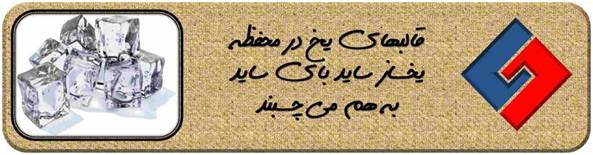 قالبهای یخ در محفظه
یخساز ساید بای ساید
به هم می چسبند